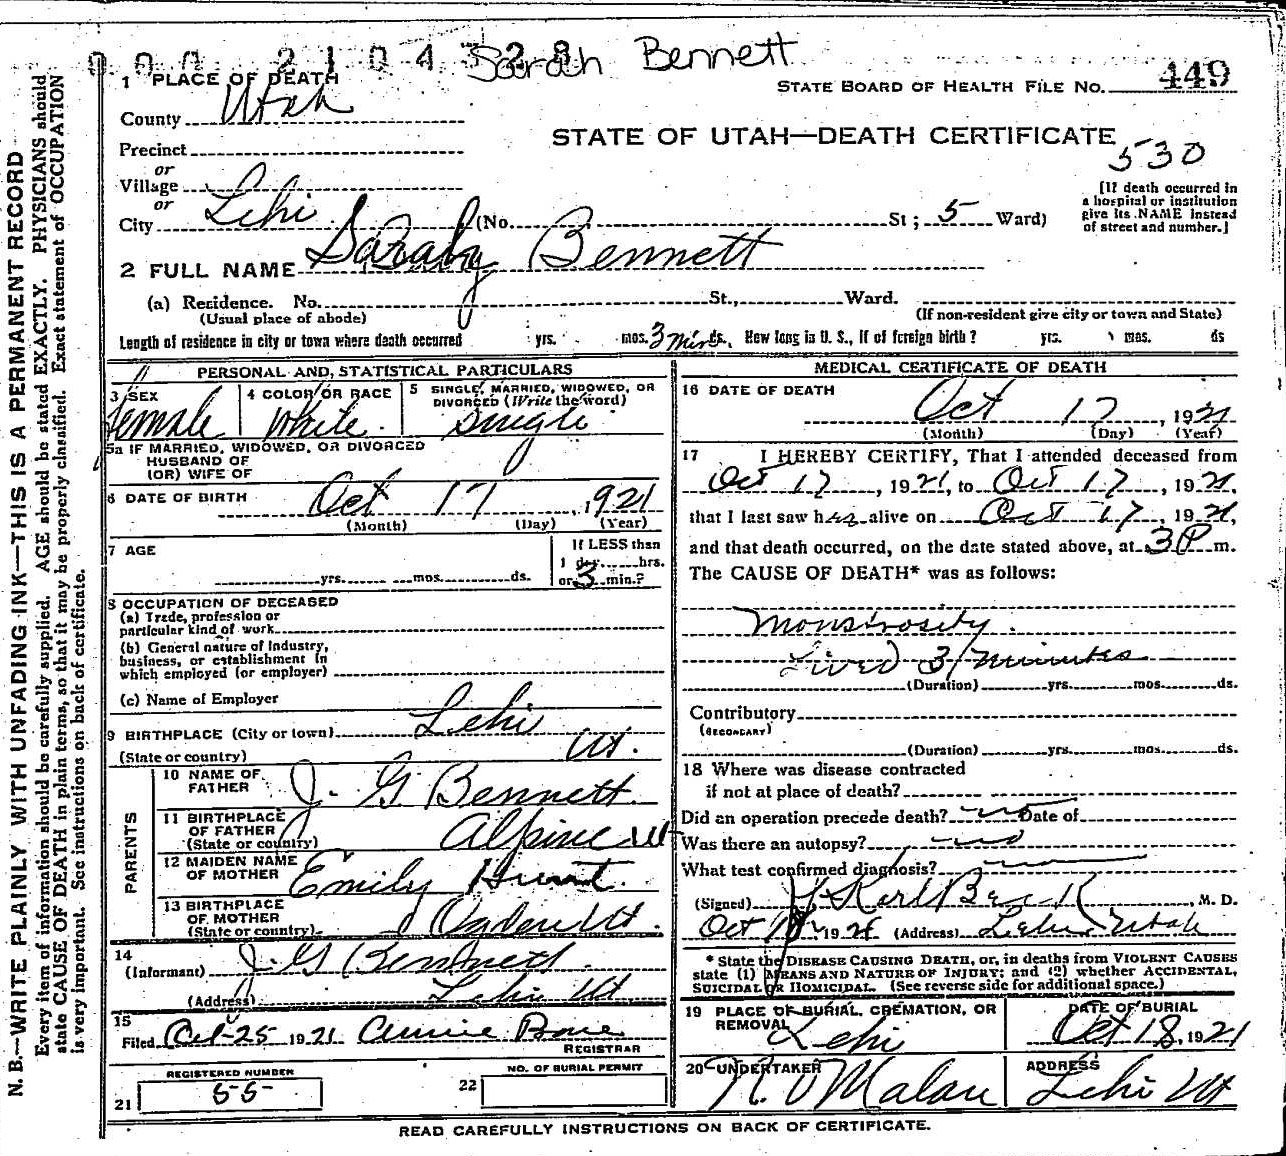 000 2104328 Sarah Bennett
1 PLACE OF DEATH
STATE BOARD OF HEALTH FILE No. 449
County Utah
STATE OF UTAH—DEATH CERTIFICATE
530
Precinct
or
Village
or
City Lehi (No. St ; 5 Ward)
[If death occurred in
a hospital or institution
give its NAME instead
of street and number.]
2 FULL NAME Sarah Bennett
(a) Residence. No. St., Ward.
(Usual place of abode) (If non-resident give city or town and State)
Length of residence in city or town where death occurred yrs. mos. 3 Mins. ds. How long in U. S., if of foreign birth? yrs. mos. ds
PERSONAL AND STATISTICAL PARTICULARS
3 SEX 4 COLOR OR RACE 5 SINGLE, MARRIED, WIDOWED, OR
DIVORCED (Write the word)
Female White Single
5a IF MARRIED, WIDOWED, OR DIVORCED
HUSBAND OF
(OR) WIFE OF
6 DATE OF BIRTH Oct 17, 1921
(Month) (Day) (Year)
7 AGE If LESS than
1 day hrs.
yrs. mos. ds. or 3 min.?
8 OCCUPATION OF DECEASED
(a) Trade, profession or
particular kind of work
(b) General nature of Industry,
business, or establishment in
which employed (or employer)
(c) Name of Employer
9 BIRTHPLACE (City or town) Lehi
(State or country) Ut.
PARENTS
10 NAME OF
FATHER J. G Bennett
11 BIRTHPLACE
OF FATHER
(State or country) Alpine Ut
12 MAIDEN NAME
OF MOTHER Emily Hunt.
13 BIRTHPLACE
OF MOTHER
(State or country) Ogden Ut.
14
(Informant) J. G Bennett
(Address) Lehi Ut
15
Filed Oct-25 1921 Annie Bone
REGISTRAR
REGISTERED NUMBER NO. OF BURIAL PERMIT
21 55 22
MEDICAL CERTIFICATE OF DEATH
16 DATE OF DEATH
Oct 17, 1921
(Month) (Day) (Year)
17 I HEREBY CERTIFY, That I attended deceased from
Oct 17, 1921, to Oct 17, 1921,
that I last saw her alive on Oct 17, 1921,
and that death occurred, on the date stated above, at 3 P m.
The CAUSE OF DEATH* was as follows:
Monstrosity.
Lived 3 minutes
(Duration) yrs. mos. ds.
Contributory
(SECONDARY)
(Duration) yrs. mos. ds.
18 Where was disease contracted
if not at place of death?
Did an operation precede death? no Date of
Was there an autopsy? no
What test confirmed diagnosis?
(Signed) Karl Beck, M. D.
Oct 18, 1921 (Address) Lehi Utah
* State the DISEASE CAUSING DEATH, or, in deaths from VIOLENT CAUSES
state (1) MEANS AND NATURE OF INJURY; and (2) whether ACCIDENTAL,
SUICIDAL OR HOMICIDAL. (See reverse side for additional space.)
19 PLACE OF BURIAL, CREMATION, OR
REMOVAL Lehi
DATE OF BURIAL
Oct 18, 1921
20 UNDERTAKER
ADDRESS
Malan Lehi Ut
READ CAREFULLY INSTRUCTIONS ON BACK OF CERTIFICATE.
N. B.—WRITE PLAINLY WITH UNFADING INK—THIS IS A PERMANENT RECORD
Every item of information should be carefully supplied. AGE should be stated EXACTLY. PHYSICIANS should
state CAUSE OF DEATH in plain terms, so that it may be properly classified. Exact statement of OCCUPATION
is very important. See instructions on back of certificate.